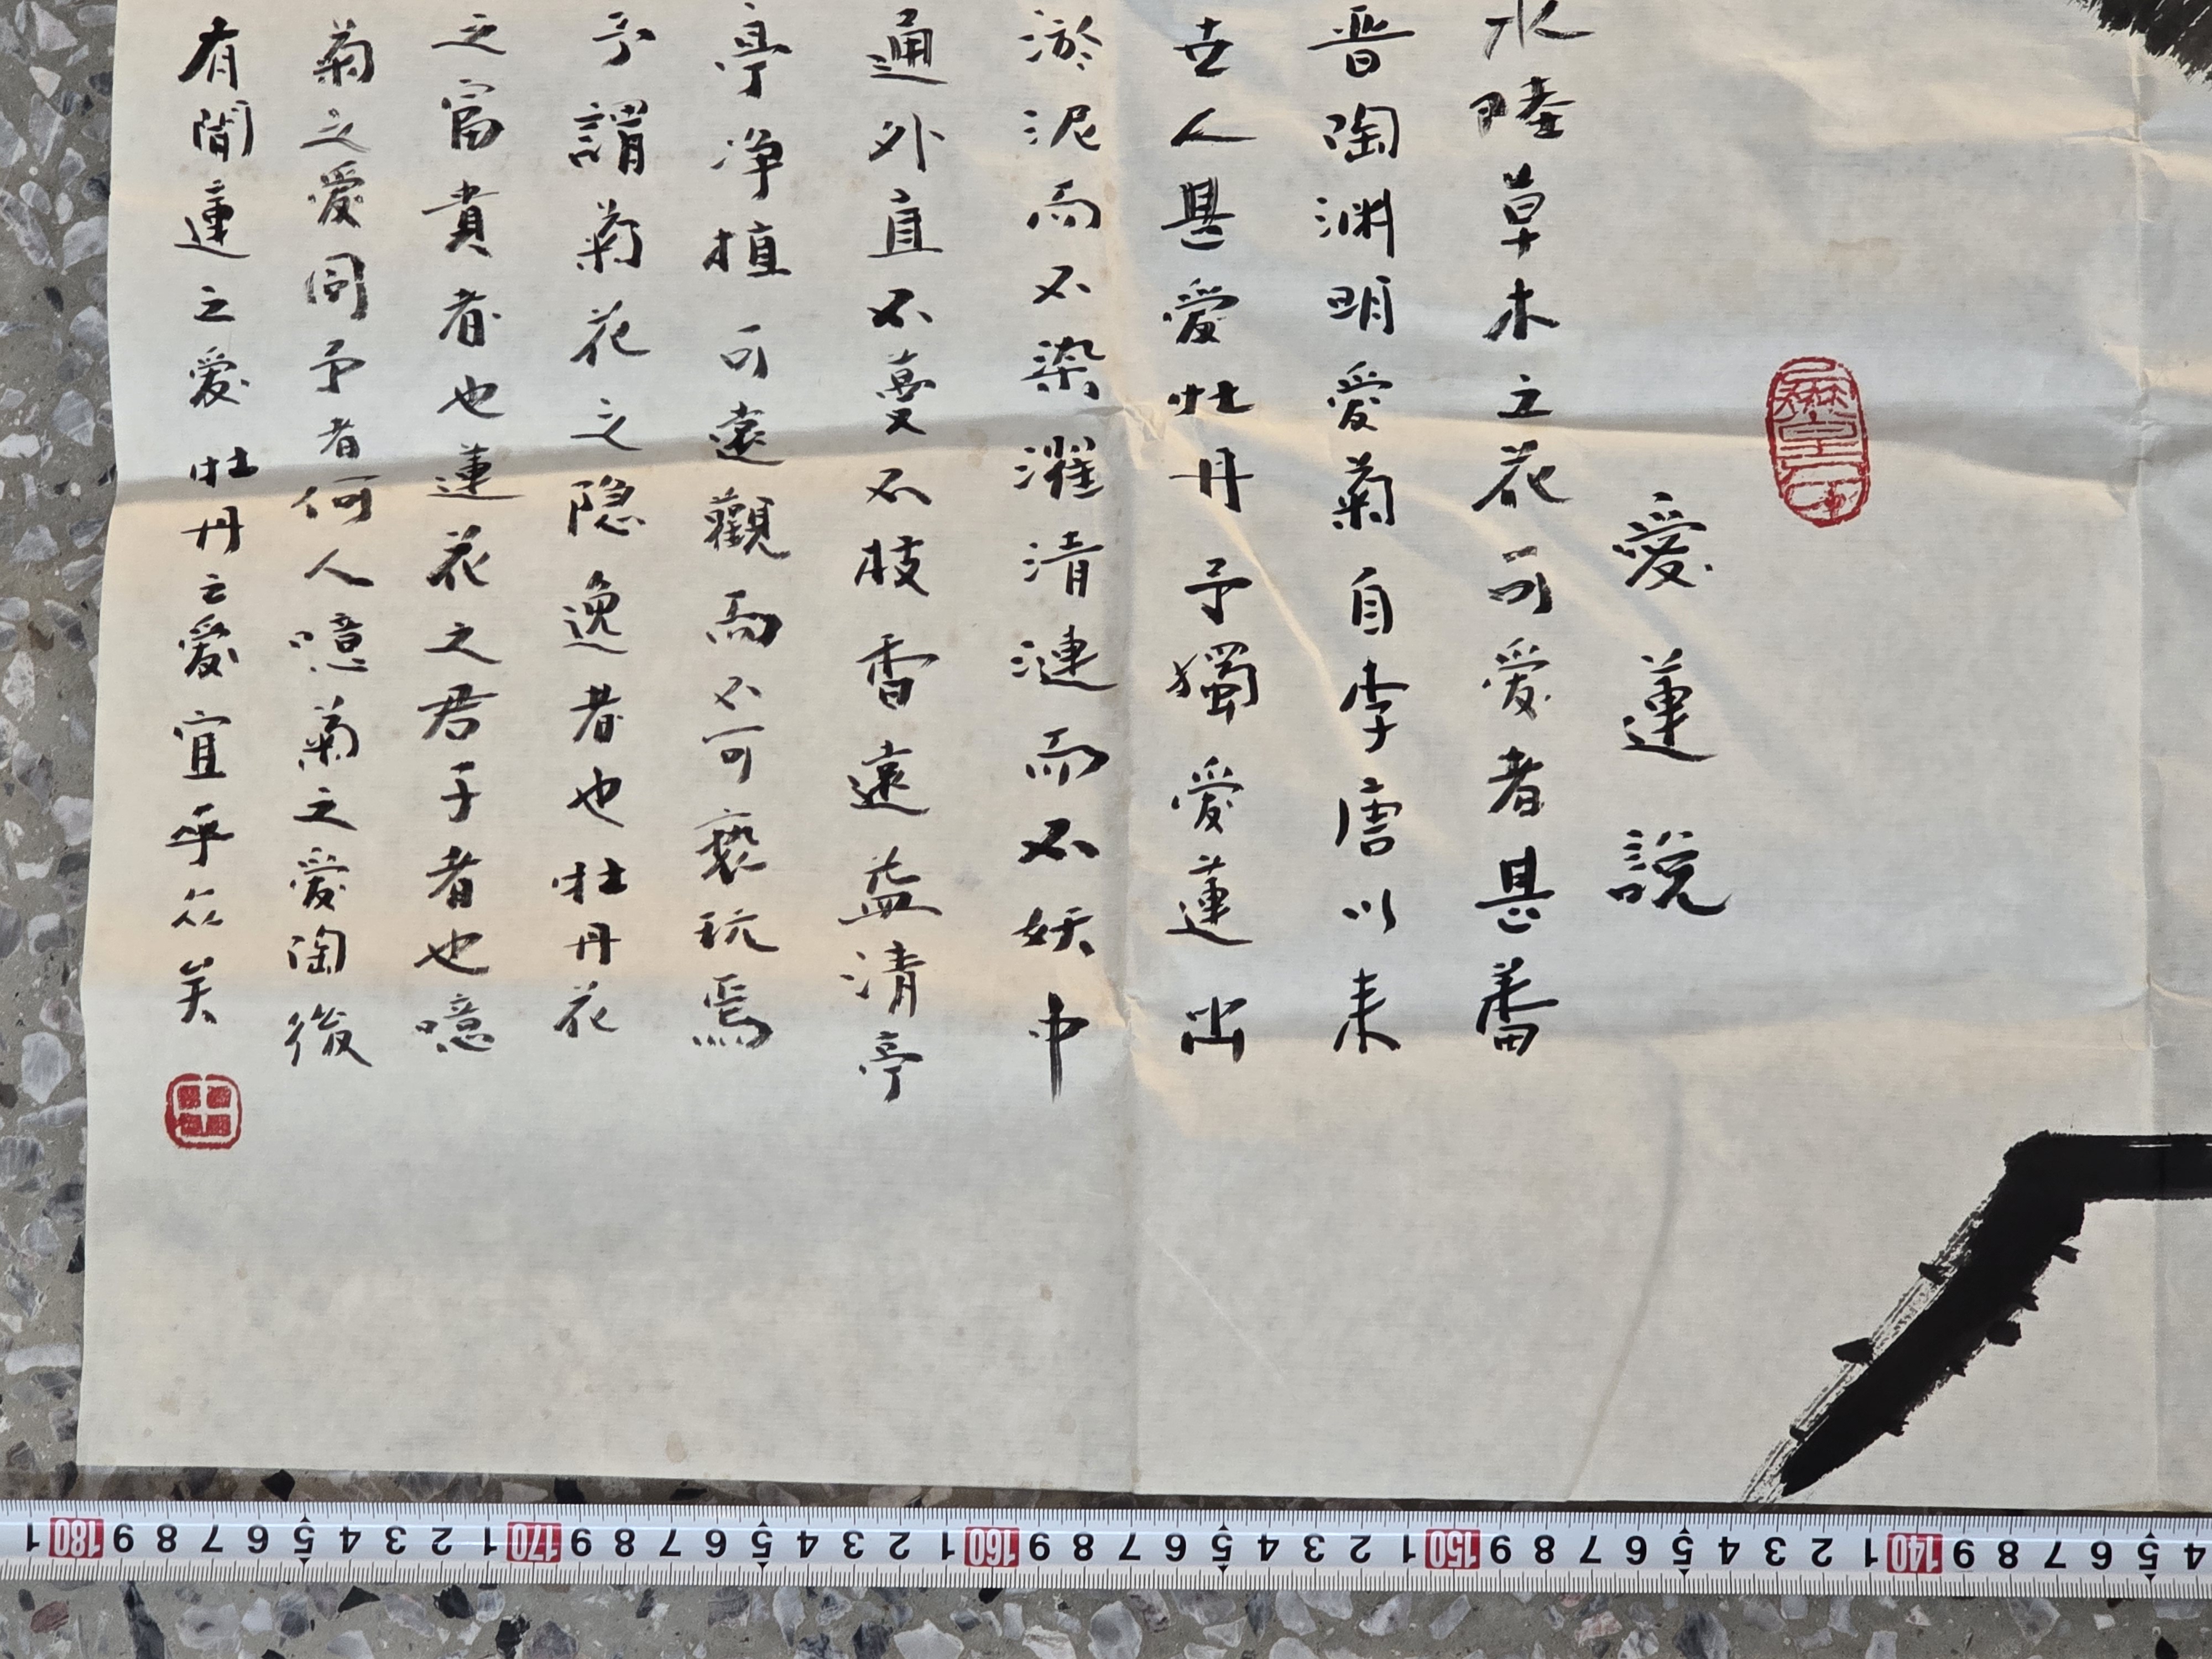 愛蓮說
水陸草木之花可愛者甚蕃
晋陶渊明愛菊自李唐以来
世人甚愛牡丹予獨愛蓮出
淤泥而不染濯清漣而不妖中
通外直不蔓不枝香遠益清亭
亭净植可遠觀而不可褻玩焉
予謂菊花之隐逸者也牡丹花
之富貴者也蓮花之君子者也噫
菊之愛同予者何人噫菊之愛陶後
有聞蓮之愛牡丹之愛宜乎众矣
4 5 6 7 8 9 140 1 2 3 4 5 6 7 8 9 150 1 2 3 4 5 6 7 8 9 160 1 2 3 4 5 6 7 8 9 170 1 2 3 4 5 6 7 8 9 180 1